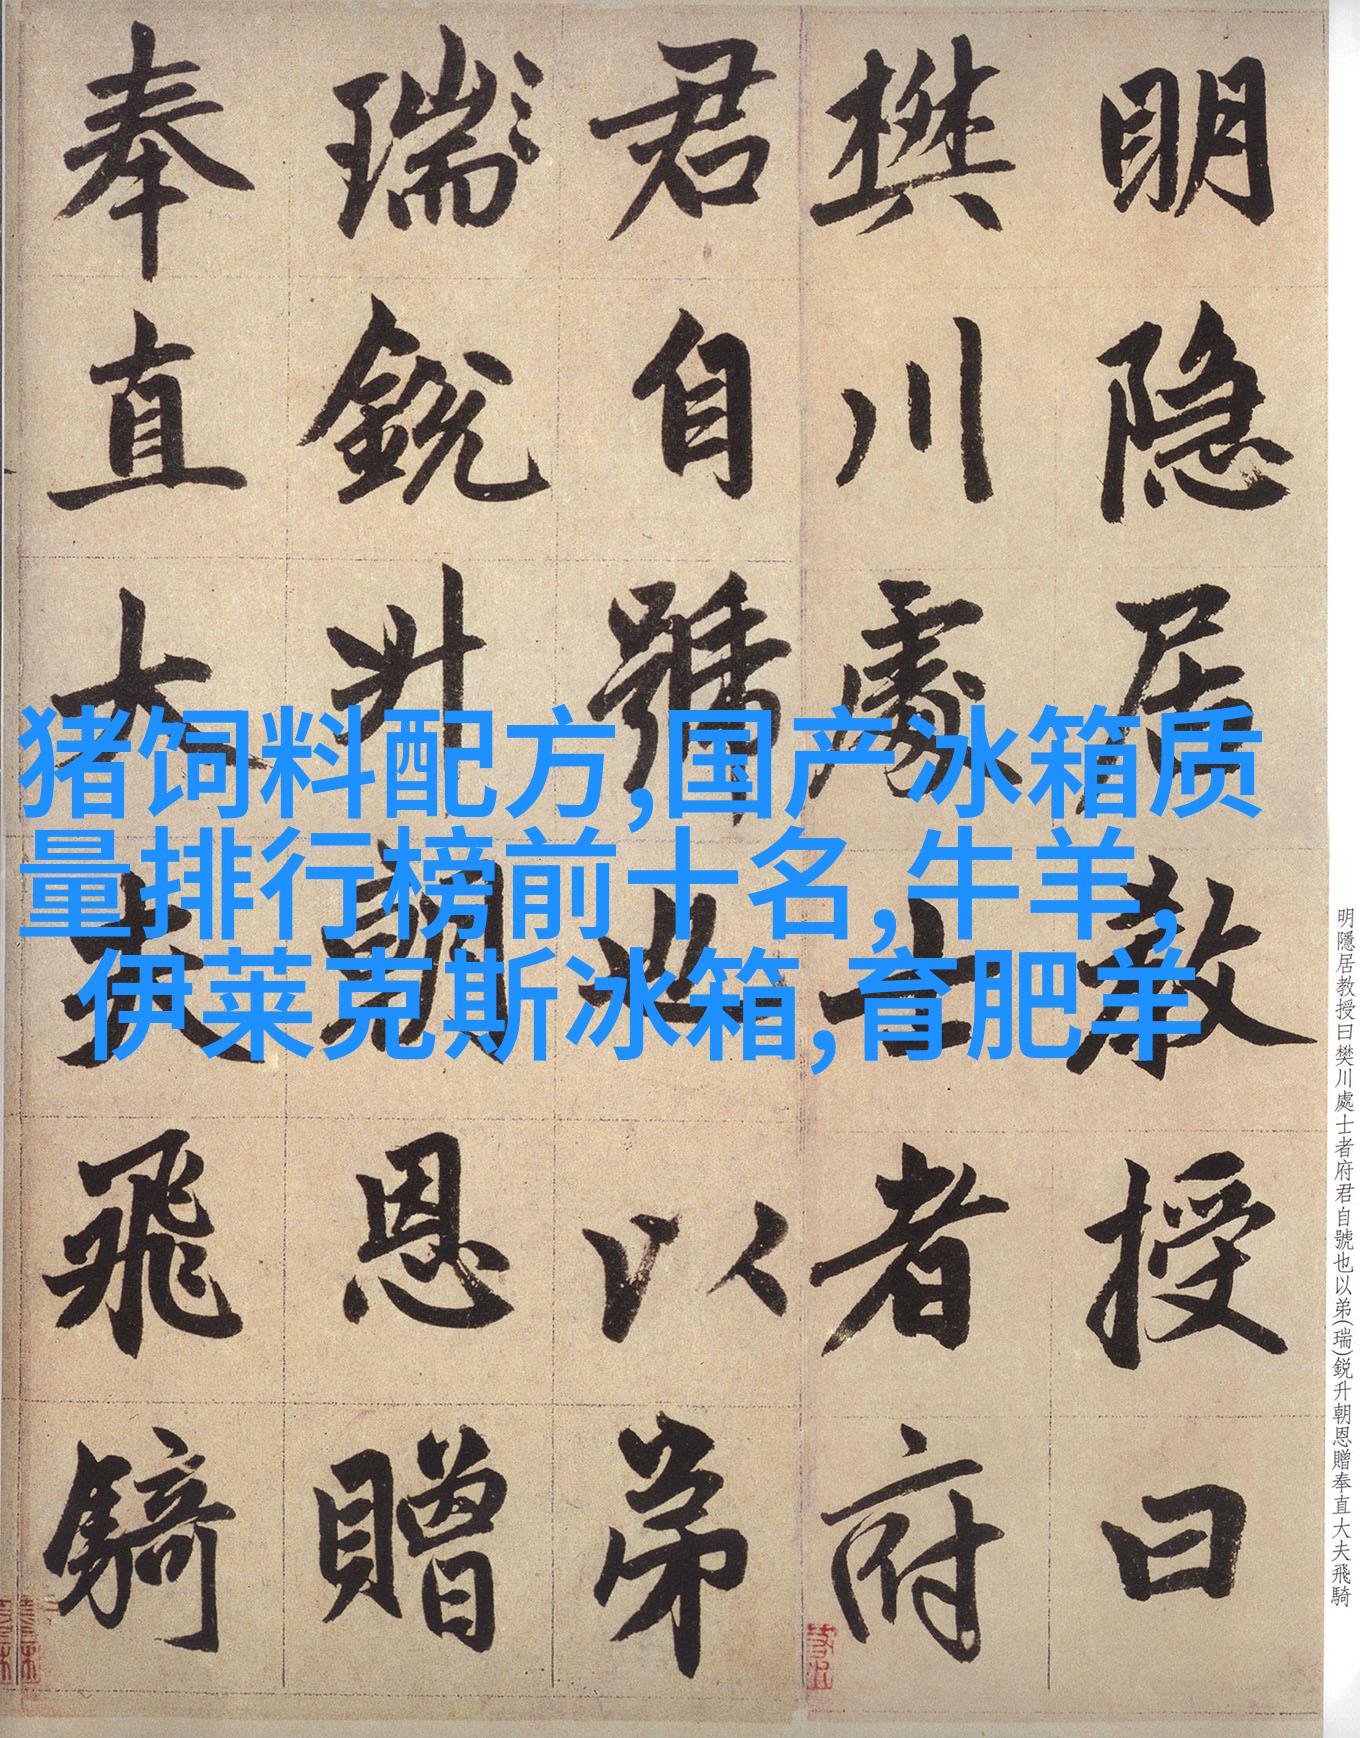 明隐居教授曰
樊川處士者府
君自號也以弟
瑞銳升朝恩贈
奉直大夫飛騎
猪饲料配方,国产冰箱质
量排行榜前十名,牛羊,
伊莱克斯冰箱,育肥羊
明隱居教授曰樊川處士者府君自號也以弟(瑞)鋭升朝恩贈奉直大夫飛騎